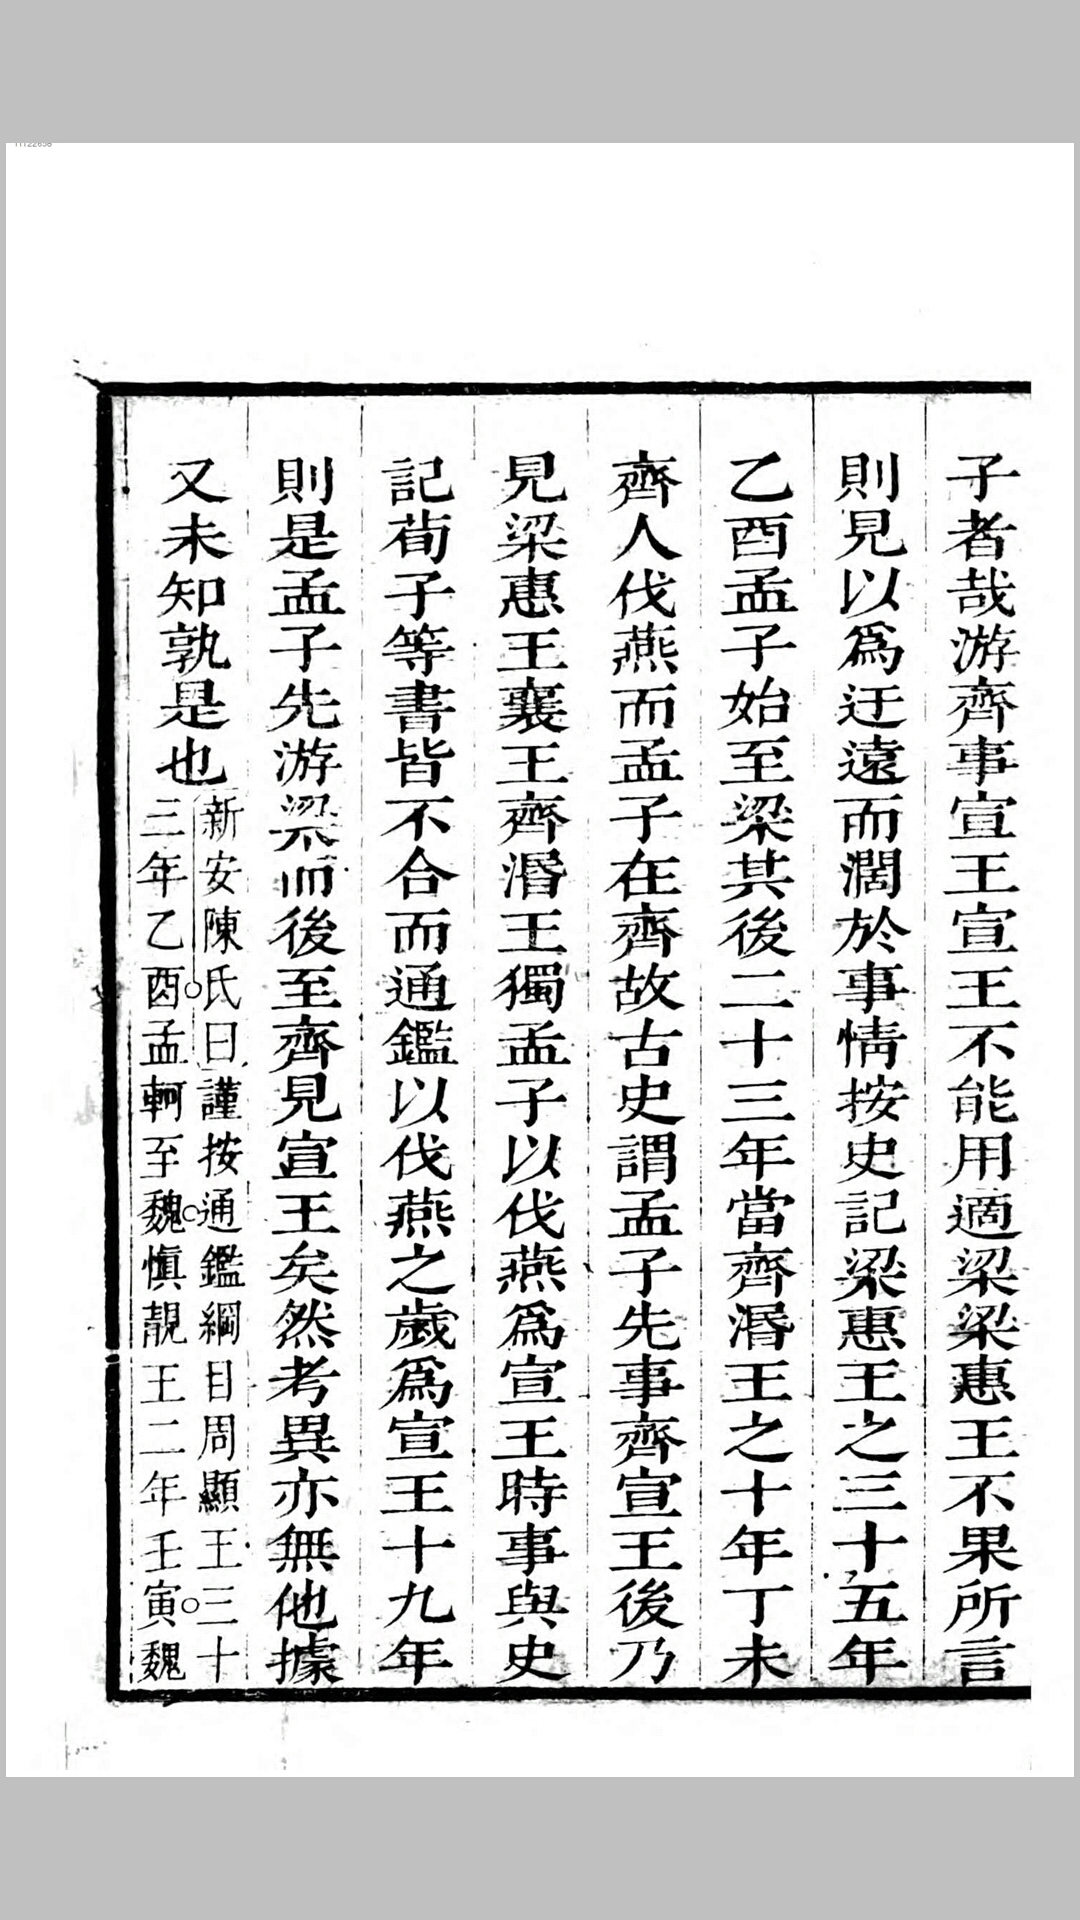 11122638
子者哉游齊事宣王宣王不能用適梁梁惠王不果所言
則見以爲迂遠而濶於事情按史記梁惠王之三十五年
乙酉孟子始至梁其後二十三年當齊湣王之十年丁未
齊人伐燕而孟子在齊故古史謂孟子先事齊宣王後乃
見梁惠王襄王齊湣王獨孟子以伐燕爲宣王時事與史
記荀子等書皆不合而通鑑以伐燕之歲爲宣王十九年
則是孟子先游梁而後至齊見宣王矣然考異亦無他據
又未知孰是也
新安陳氏曰謹按通鑑綱目周顯王三十
三年乙酉孟軻至魏愼靚王二年壬寅魏